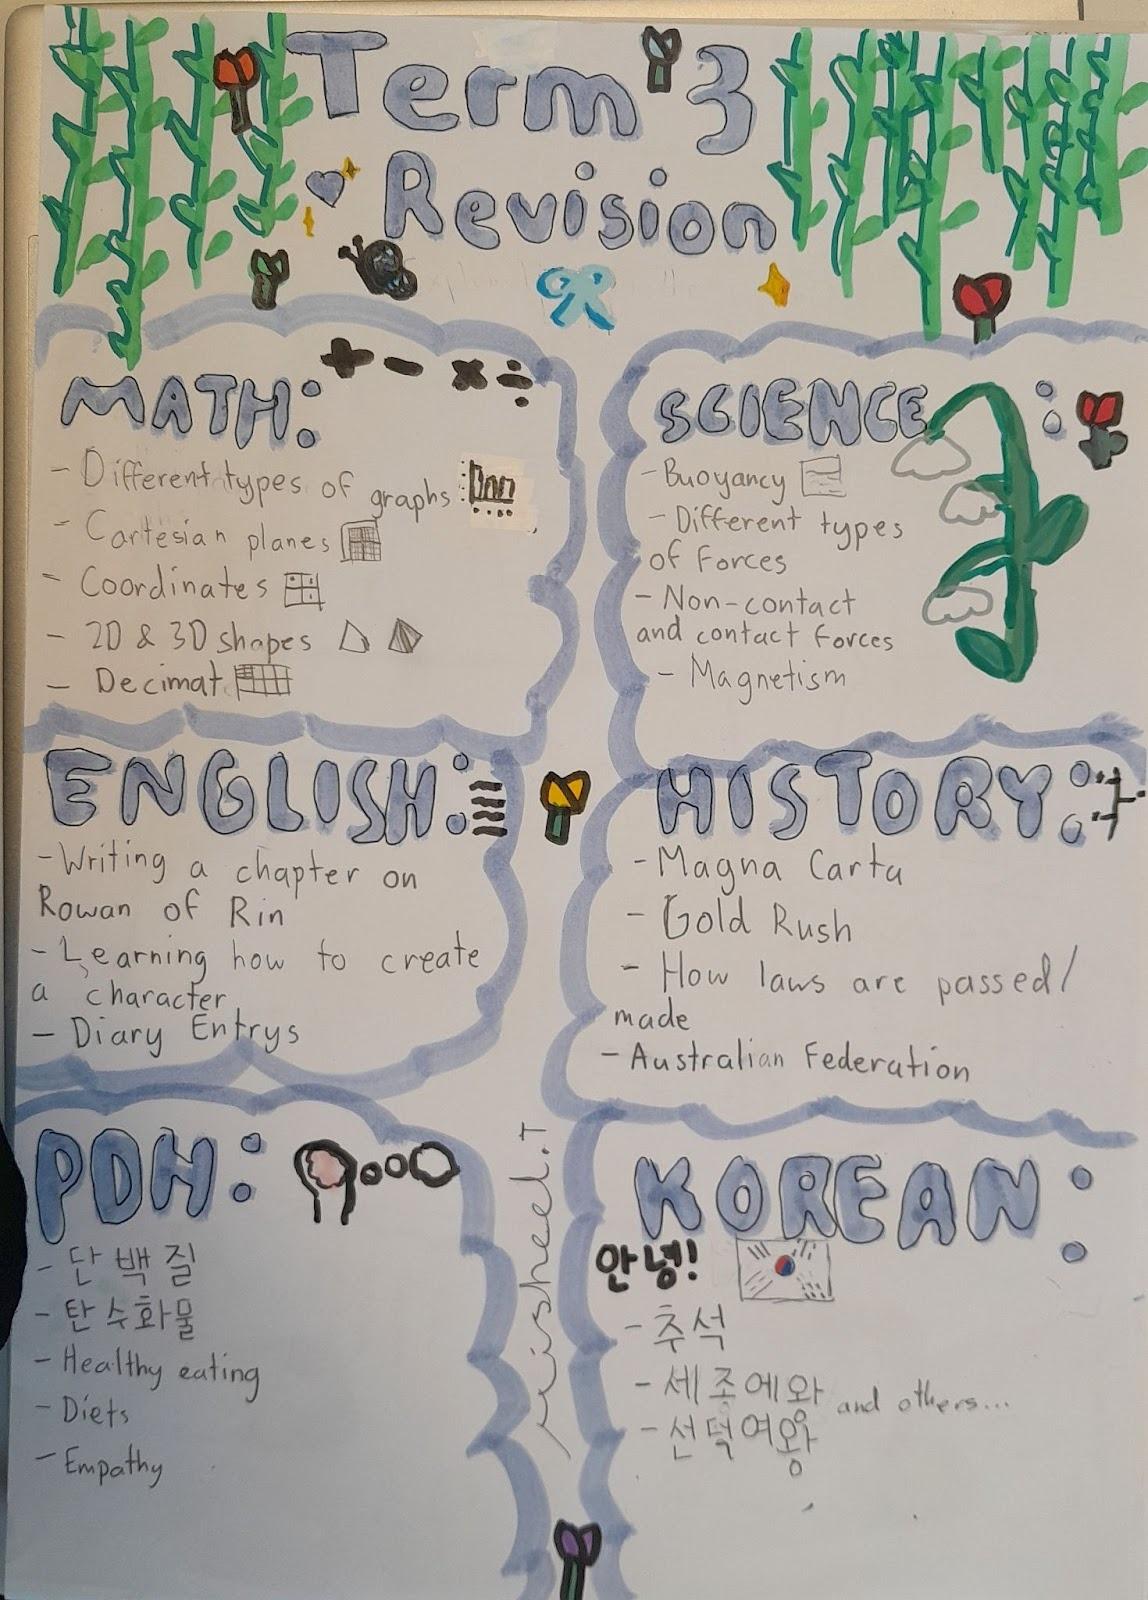 Term 3
Revision
MATH:
- Different types of graphs
- Cartesian planes
- Coordinates
- 2D & 3D shapes
- Decimal
SCIENCE:
- Buoyancy
- Different types
of Forces
- Non-contact
and contact forces
- Magnetism
ENGLISH:
- Writing a chapter on
Rowan of Rin
- Learning how to create
a character
- Diary Entrys
HISTORY:
- Magna Carta
- Gold Rush
- How laws are passed/
made
- Australian Federation
PDH:
- 단백질
- 탄수화물
- Healthy eating
- Diets
- Empathy
misheel.T
KOREAN:
안녕!
- 추석
- 세종에왕 and others...
- 선덕여왕